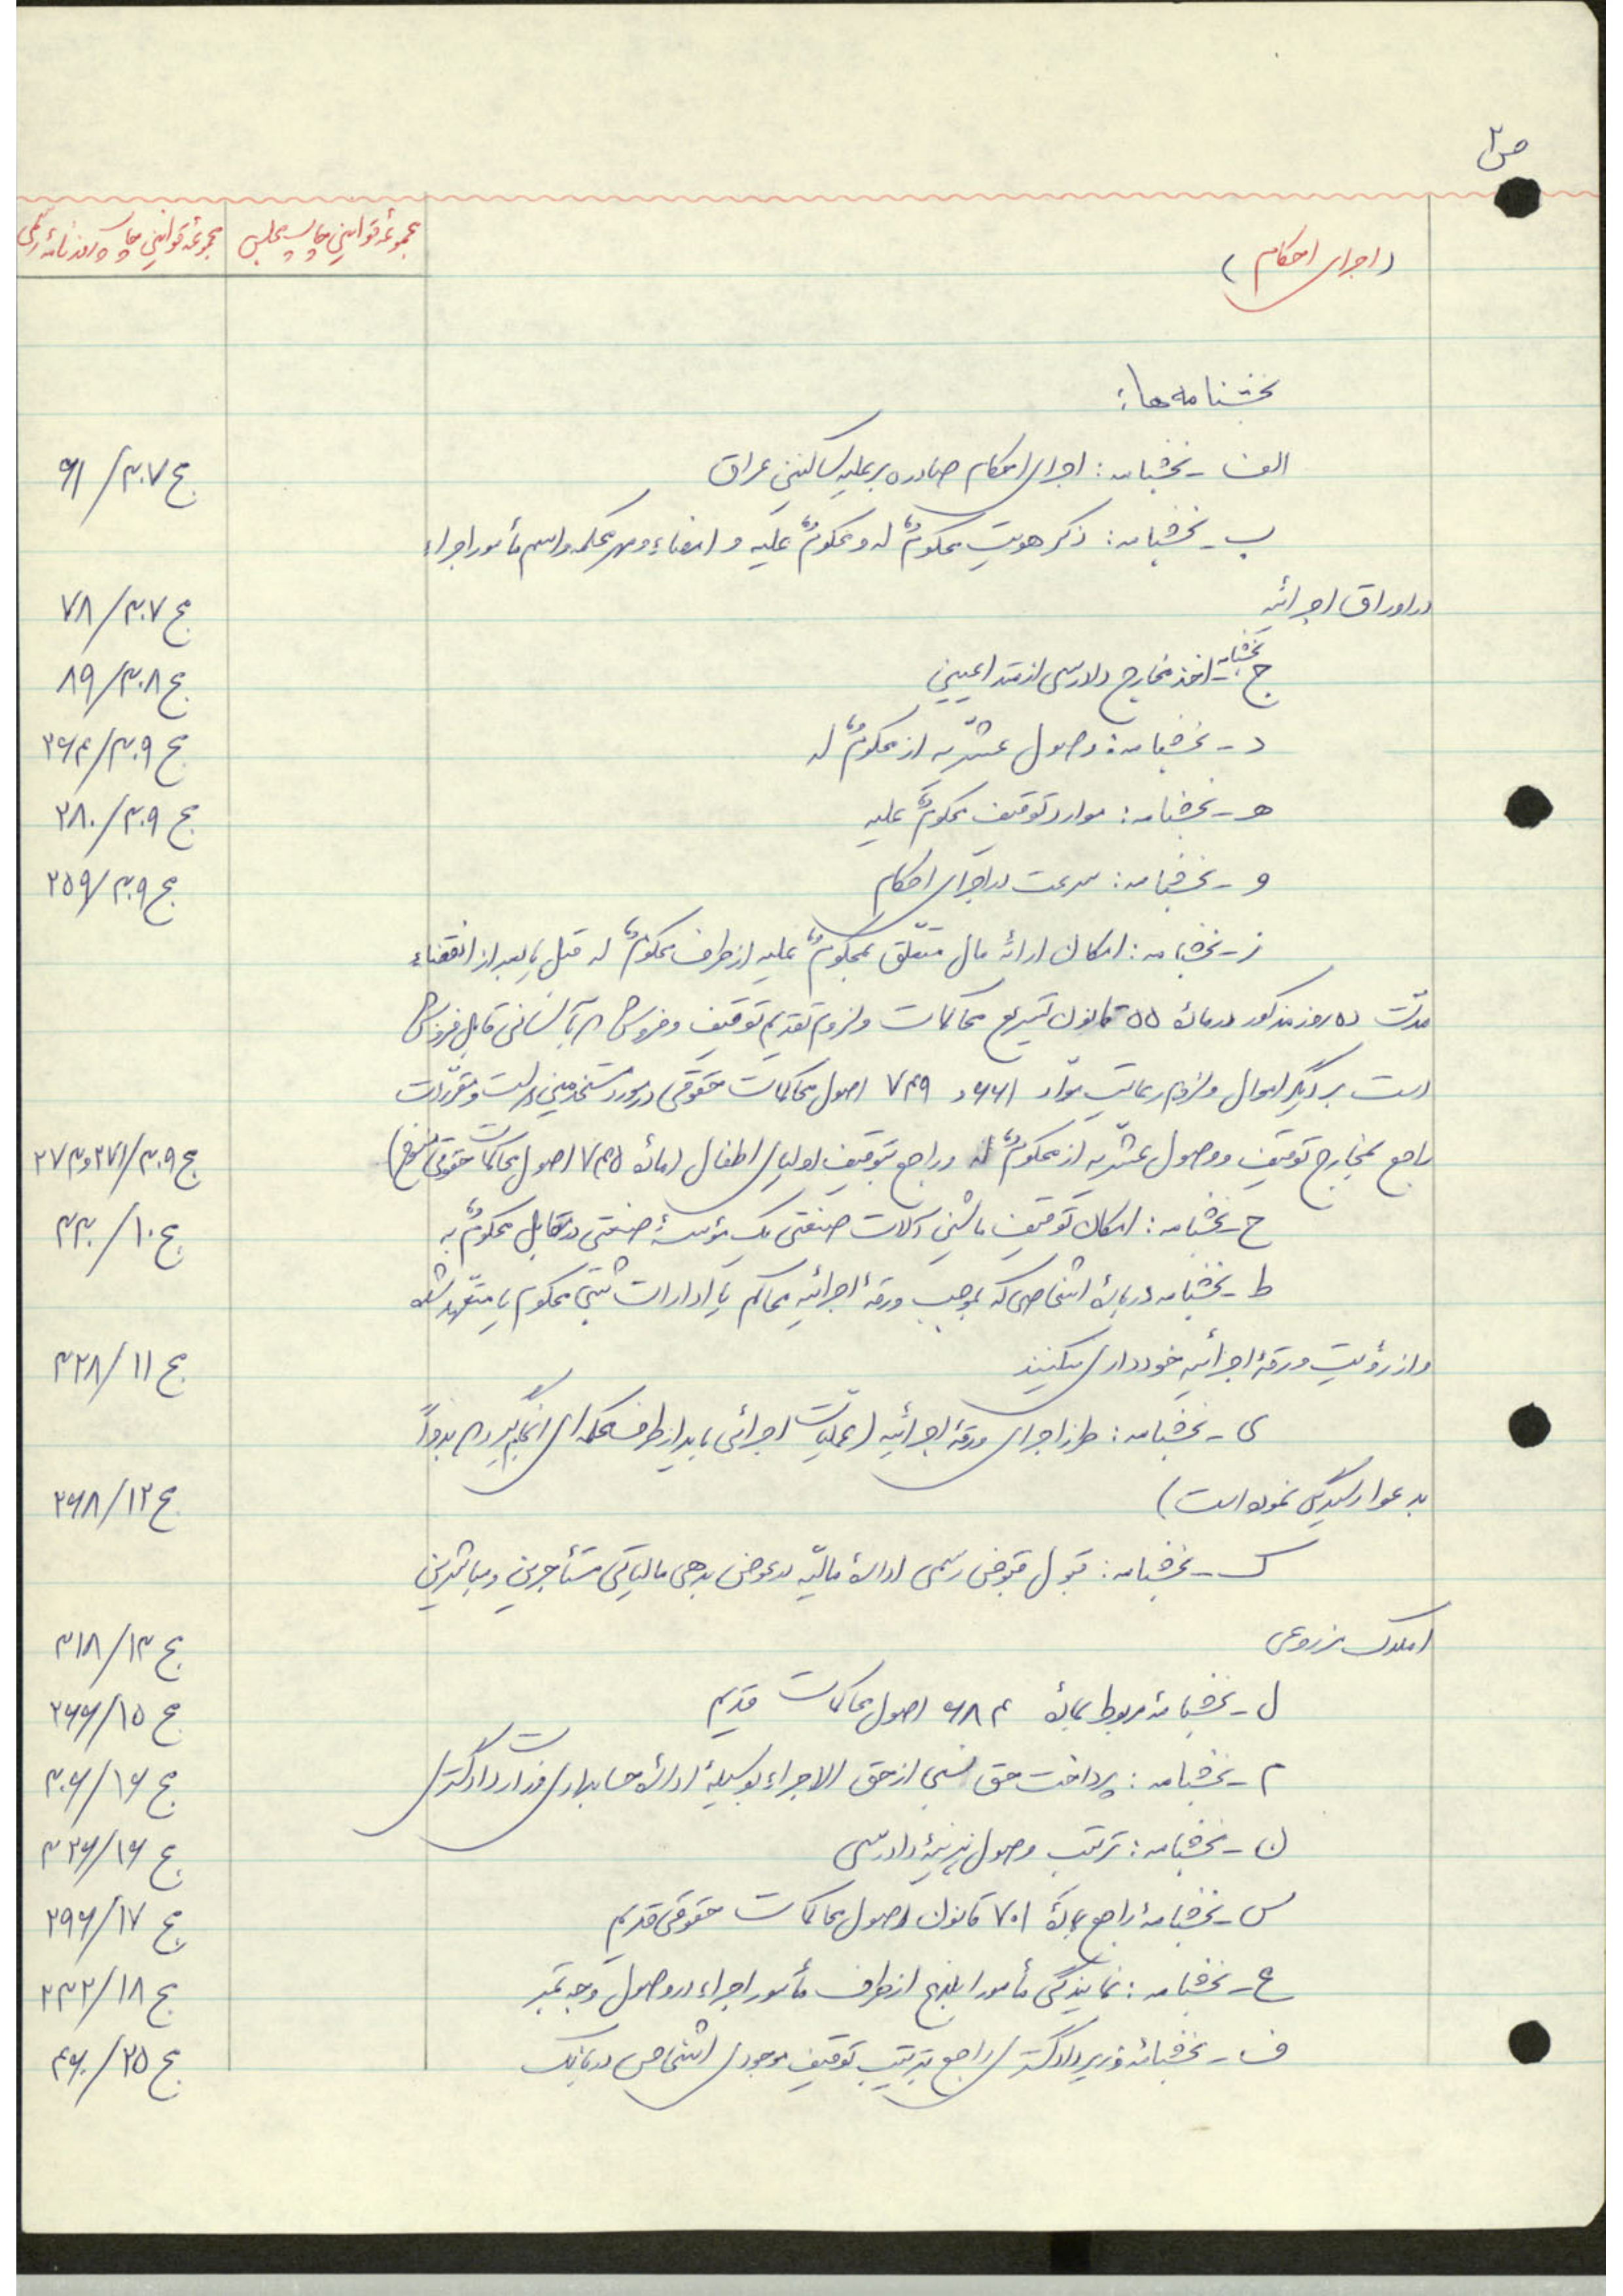 ص۲
(اجرای احکام)
مجموعهٔ قوانین چاپ مجلس
مجموعهٔ قوانین چاپ روزنامهٔ رسمی
بخشنامه ها:
الف - بخشنامه: اجرای احکام صادره بر علیه ساکنین عراق ج ۳۰۷/ ۶۱
ب - بخشنامه: ذکر هویت محکومٌ له و محکومٌ علیه و امضاء و مهر محکمه و اسم مأمور اجراء
در اوراق اجرائیه ج ۳۰۷/ ۷۸
ج - بخشنامه اخذ مخارج دادرسی از متداعیین ج ۳۰۸/ ۸۹
د - بخشنامه: وصول عشریه از محکومٌ له ج ۳۰۹/ ۲۶۴
هـ - بخشنامه: موارد توقیف محکومٌ علیه ج ۳۰۹/ ۲۸۰
و - بخشنامه: سرعت در اجرای احکام ج ۳۰۹/ ۲۵۹
ز - بخشنامه: امکان ارائه مال متعلّق بمحکومٌ علیه از طرف محکومٌ له قبل یا بعد از انقضاء
مدّت ده روز مذکور در مادهٔ ۵۵ قانون تسریع محاکمات و لزوم تقدیم توقیف و فروش بآسانی قابل فروش
است بر دیگر اموال و لزوم رعایت موّاد ۶۶۱ و ۷۴۹ اصول محاکمات حقوقی در مورد مستخدمین دولت و مقرّرات
راجع بمخارج توقیف و وصول عشریه از محکومٌ له و راجع بتوقیف اولیای اطفال (مادهٔ ۷۴۵ اصول محاکمات حقوقی) ج ۳۰۹/ ۲۷۱ و ۲۷۳
ح - بخشنامه: امکان توقیف ماشین آلات صنعتی یک مؤسسهٔ صنعتی در مقابل محکومٌ به ج ۱۰/ ۳۳۰
ط - بخشنامه دربارهٔ اشخاصی که بموجب ورقهٔ اجرائیه محاکم یا ادارات ثبتی محکوم یا متعهد شده
و از رؤیت ورقهٔ اجرائیه خودداری میکنند ج ۱۱/ ۳۲۸
ی - بخشنامه: طرز اجرای ورقهٔ اجرائیه (عملیّات اجرائی باید از طرف محکمه ای انجام گیرد که بدواً
بدعوا رسیدگی نموده است) ج ۱۲/ ۲۶۸
ک - بخشنامه: قبول قبوض رسمی ادارهٔ مالیّه در عوض بدهی مالیاتی مستأجرین و مباشرین
املاک مزروعی ج ۱۳/ ۳۱۸
ل - بخشنامهٔ مربوط بمادهٔ ۶۸۴ اصول محاکمات قدیم ج ۱۵/ ۲۶۶
م - بخشنامه: پرداخت حق نسبی از حق الاجراء بوسیلهٔ ادارهٔ حسابداری وزارت دادگستری ج ۱۶/ ۳۰۶
ن - بخشنامه: ترتیب وصول هزینهٔ دادرسی ج ۱۶/ ۳۲۶
س - بخشنامهٔ راجع بمادهٔ ۷۰۱ قانون اصول محاکمات حقوقی قدیم ج ۱۷/ ۲۹۶
ع - بخشنامه: نمایندگی مأمور ابلاغ از طرف مأمور اجراء در وصول وجه تمبر ج ۱۸/ ۲۳۲
ف - بخشنامهٔ وزیر دادگستری راجع بترتیب توقیف موجودی اشخاص در بانک ج ۲۵/ ۴۶۰